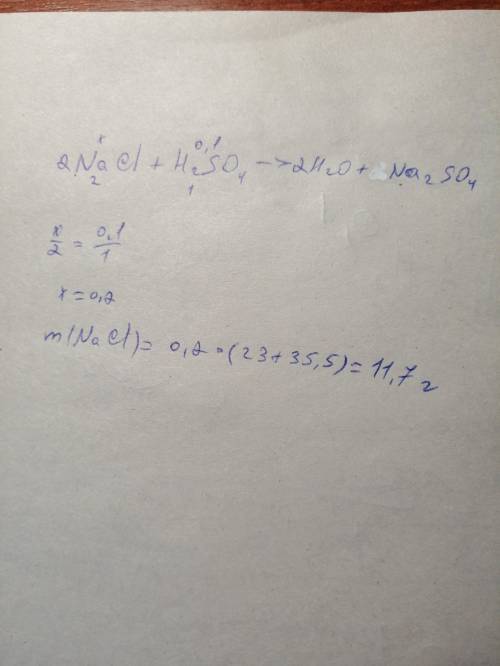 x 0,1
2NaCl + H₂SO₄ -> 2H₂O + Na₂SO₄
2 1
x/2 = 0,1/1
x = 0,2
m(NaCl) = 0,2 · (23 + 35,5) = 11,7 г